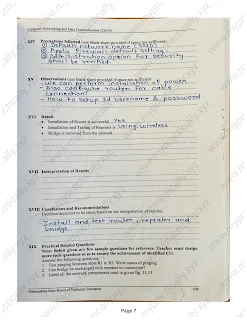 Computer Networking and Data Communication (22634)
XIV Precautions followed (use blank sheet provided if space not sufficient)
① Default network name (SSID)
② Apply firewall default setting
③ Administration option for security
shall be verified.
XV Observations (use blank sheet provided if space not sufficient)
- we can perform installation of power
- Also configure router for cable
connection?
- How to setup Id username & password
XVI Result
• Installation of Router is successful : Yes
• Installation and Testing of Repeater is using wireless
• Bridge is removed from the network
XVII Interpretation of Results
XVIII Conclusions and Recommendations
(Actions/decisions to be taken based on the interpretation of results).
Install and test router, repeater and
bridge
XIX Practical Related Questions
Note: Below given are few sample questions for reference. Teacher must design
more such questions so as to ensure the achievement of identified CO.
Answer the following questions.
1. Test pinging between Host R1 to R2. Write status of pinging.
2. Can bridge be exchanged with repeater in connection?
3. Label all the network components used in given fig. 11.13
Maharashtra State Board of Technical Education
Page 7